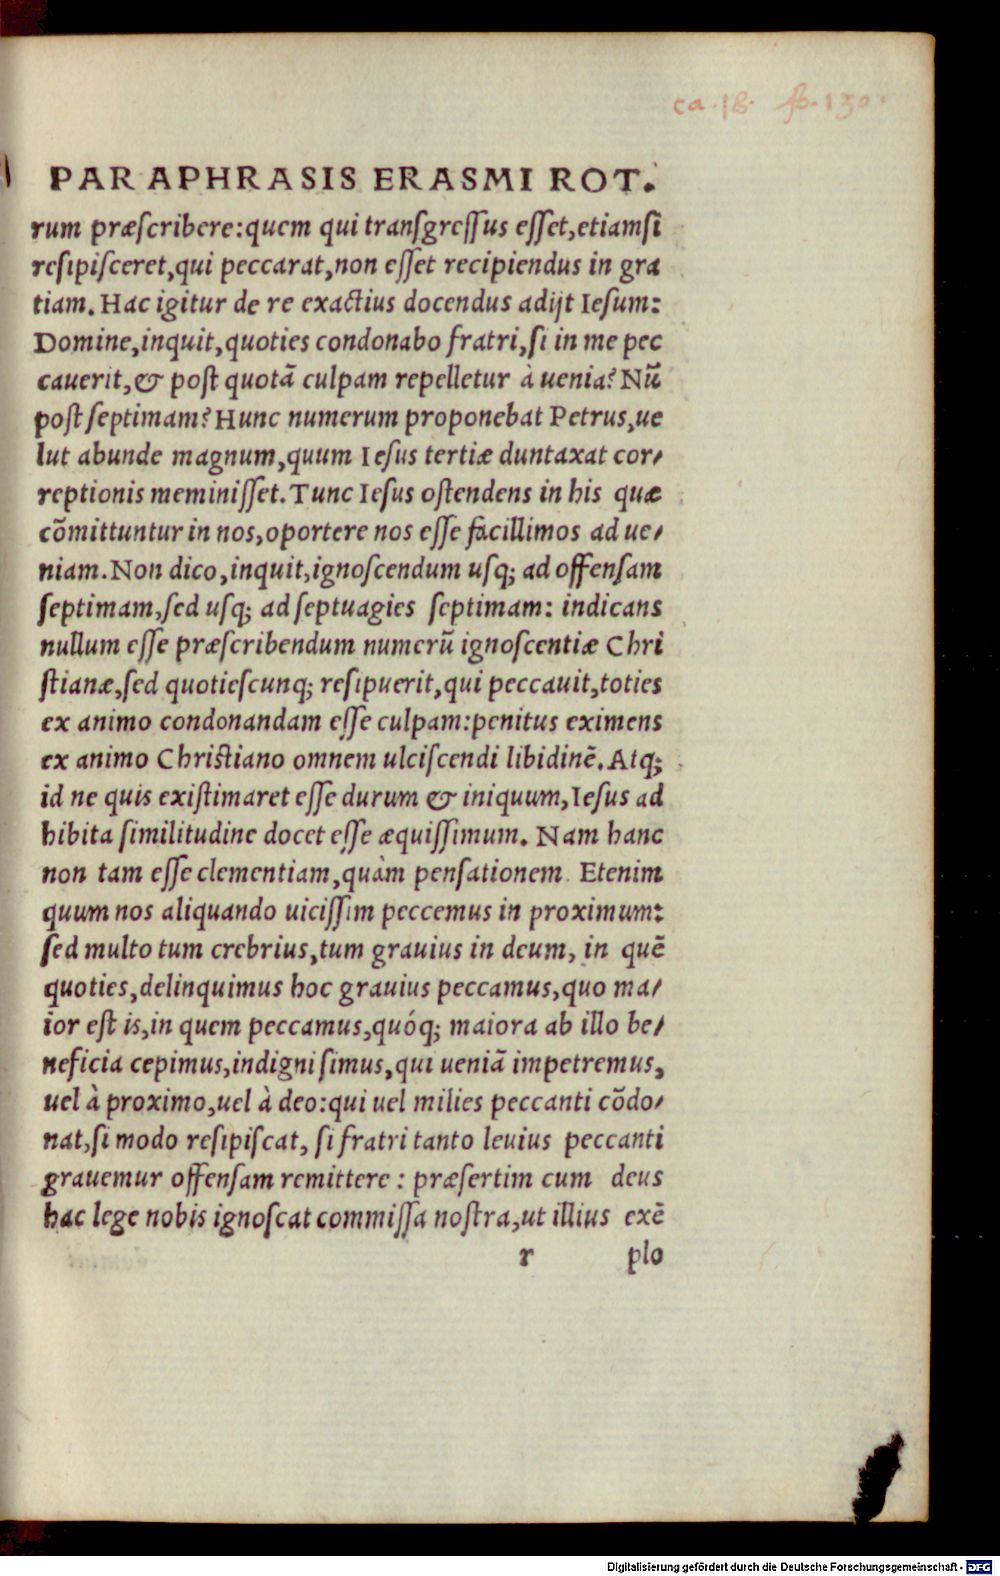 ca. 18. fo. 130.
PARAPHRASIS ERASMI ROT.
rum præſcribere:quem qui tranſgreſſus eſſet,etiamſi
reſipiſceret,qui peccarat,non eſſet recipiendus in gra
tiam. Hac igitur de re exactius docendus adijt Ieſum:
Domine,inquit,quoties condonabo fratri,ſi in me pec
cauerit,& poſt quotã culpam repelletur à uenia? Nũ
poſt ſeptimam? Hunc numerum proponebat Petrus,ue
lut abunde magnum,quum Ieſus tertiæ duntaxat cor/
reptionis meminiſſet. Tunc Ieſus oſtendens in his quæ
cõmittuntur in nos,oportere nos eſſe facillimos ad ue/
niam. Non dico,inquit,ignoſcendum uſq; ad offenſam
ſeptimam,ſed uſq; ad ſeptuagies ſeptimam: indicans
nullum eſſe præſcribendum numerũ ignoſcentiæ Chri
ſtianæ,ſed quotieſcunq; reſipuerit,qui peccauit,toties
ex animo condonandam eſſe culpam:penitus eximens
ex animo Chriſtiano omnem ulciſcendi libidinẽ. Atq;
id ne quis exiſtimaret eſſe durum & iniquum,Ieſus ad
hibita ſimilitudine docet eſſe æquiſſimum. Nam hanc
non tam eſſe clementiam,quàm penſationem. Etenim
quum nos aliquando uiciſſim peccemus in proximum:
ſed multo tum crebrius,tum grauius in deum, in quẽ
quoties,delinquimus hoc grauius peccamus,quo ma/
ior eſt is,in quem peccamus,quóq; maiora ab illo be/
neficia cepimus,indigniſimus,qui ueniã impetremus,
uel à proximo,uel à deo:qui uel milies peccanti cõdo/
nat,ſi modo reſipiſcat, ſi fratri tanto leuius peccanti
grauemur offenſam remittere : præſertim cum deus
hac lege nobis ignoſcat commiſſa noſtra,ut illius exẽ
r plo
Digitalisierung gefördert durch die Deutsche Forschungsgemeinschaft - DFG